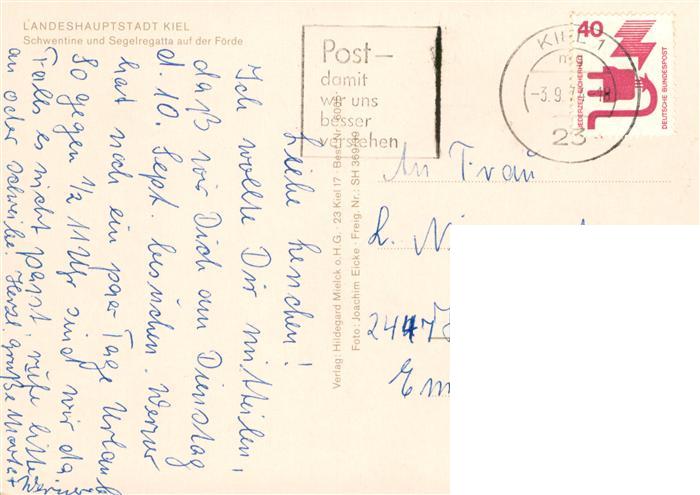 LANDESHAUPTSTADT KIEL
Schwentine und Segelregatta auf der Förde
Liebe Lenchen!
Ich wollte Dir mitteilen,
daß wir Dich am Dienstag
d. 10. Sept. besuchen. Werner
hat noch ein paar Tage Urlaub
So gegen 1/2 11 Uhr sind wir da
Falls es nicht passt, rufe bitte
an oder schreibe. Herzl. Grüße
Werner
Verlag: Hildegard Mielck o.H.G. · 23 Kiel 17 · Best.-Nr.
Foto: Joachim Eicke · Freig. Nr.: SH 369/
Post–
damit
wir uns
besser
verstehen
KIEL 1
-3.9.
23
40
JEDERZEIT SICHERHEIT
DEUTSCHE BUNDESPOST
An Frau
L. Ni
244